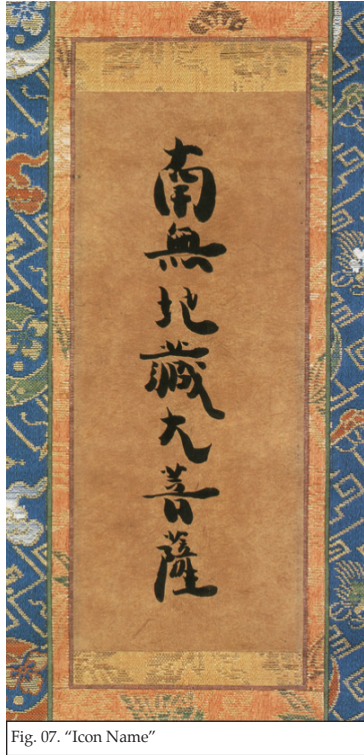 南無地蔵大菩薩
Fig. 07. “Icon Name”